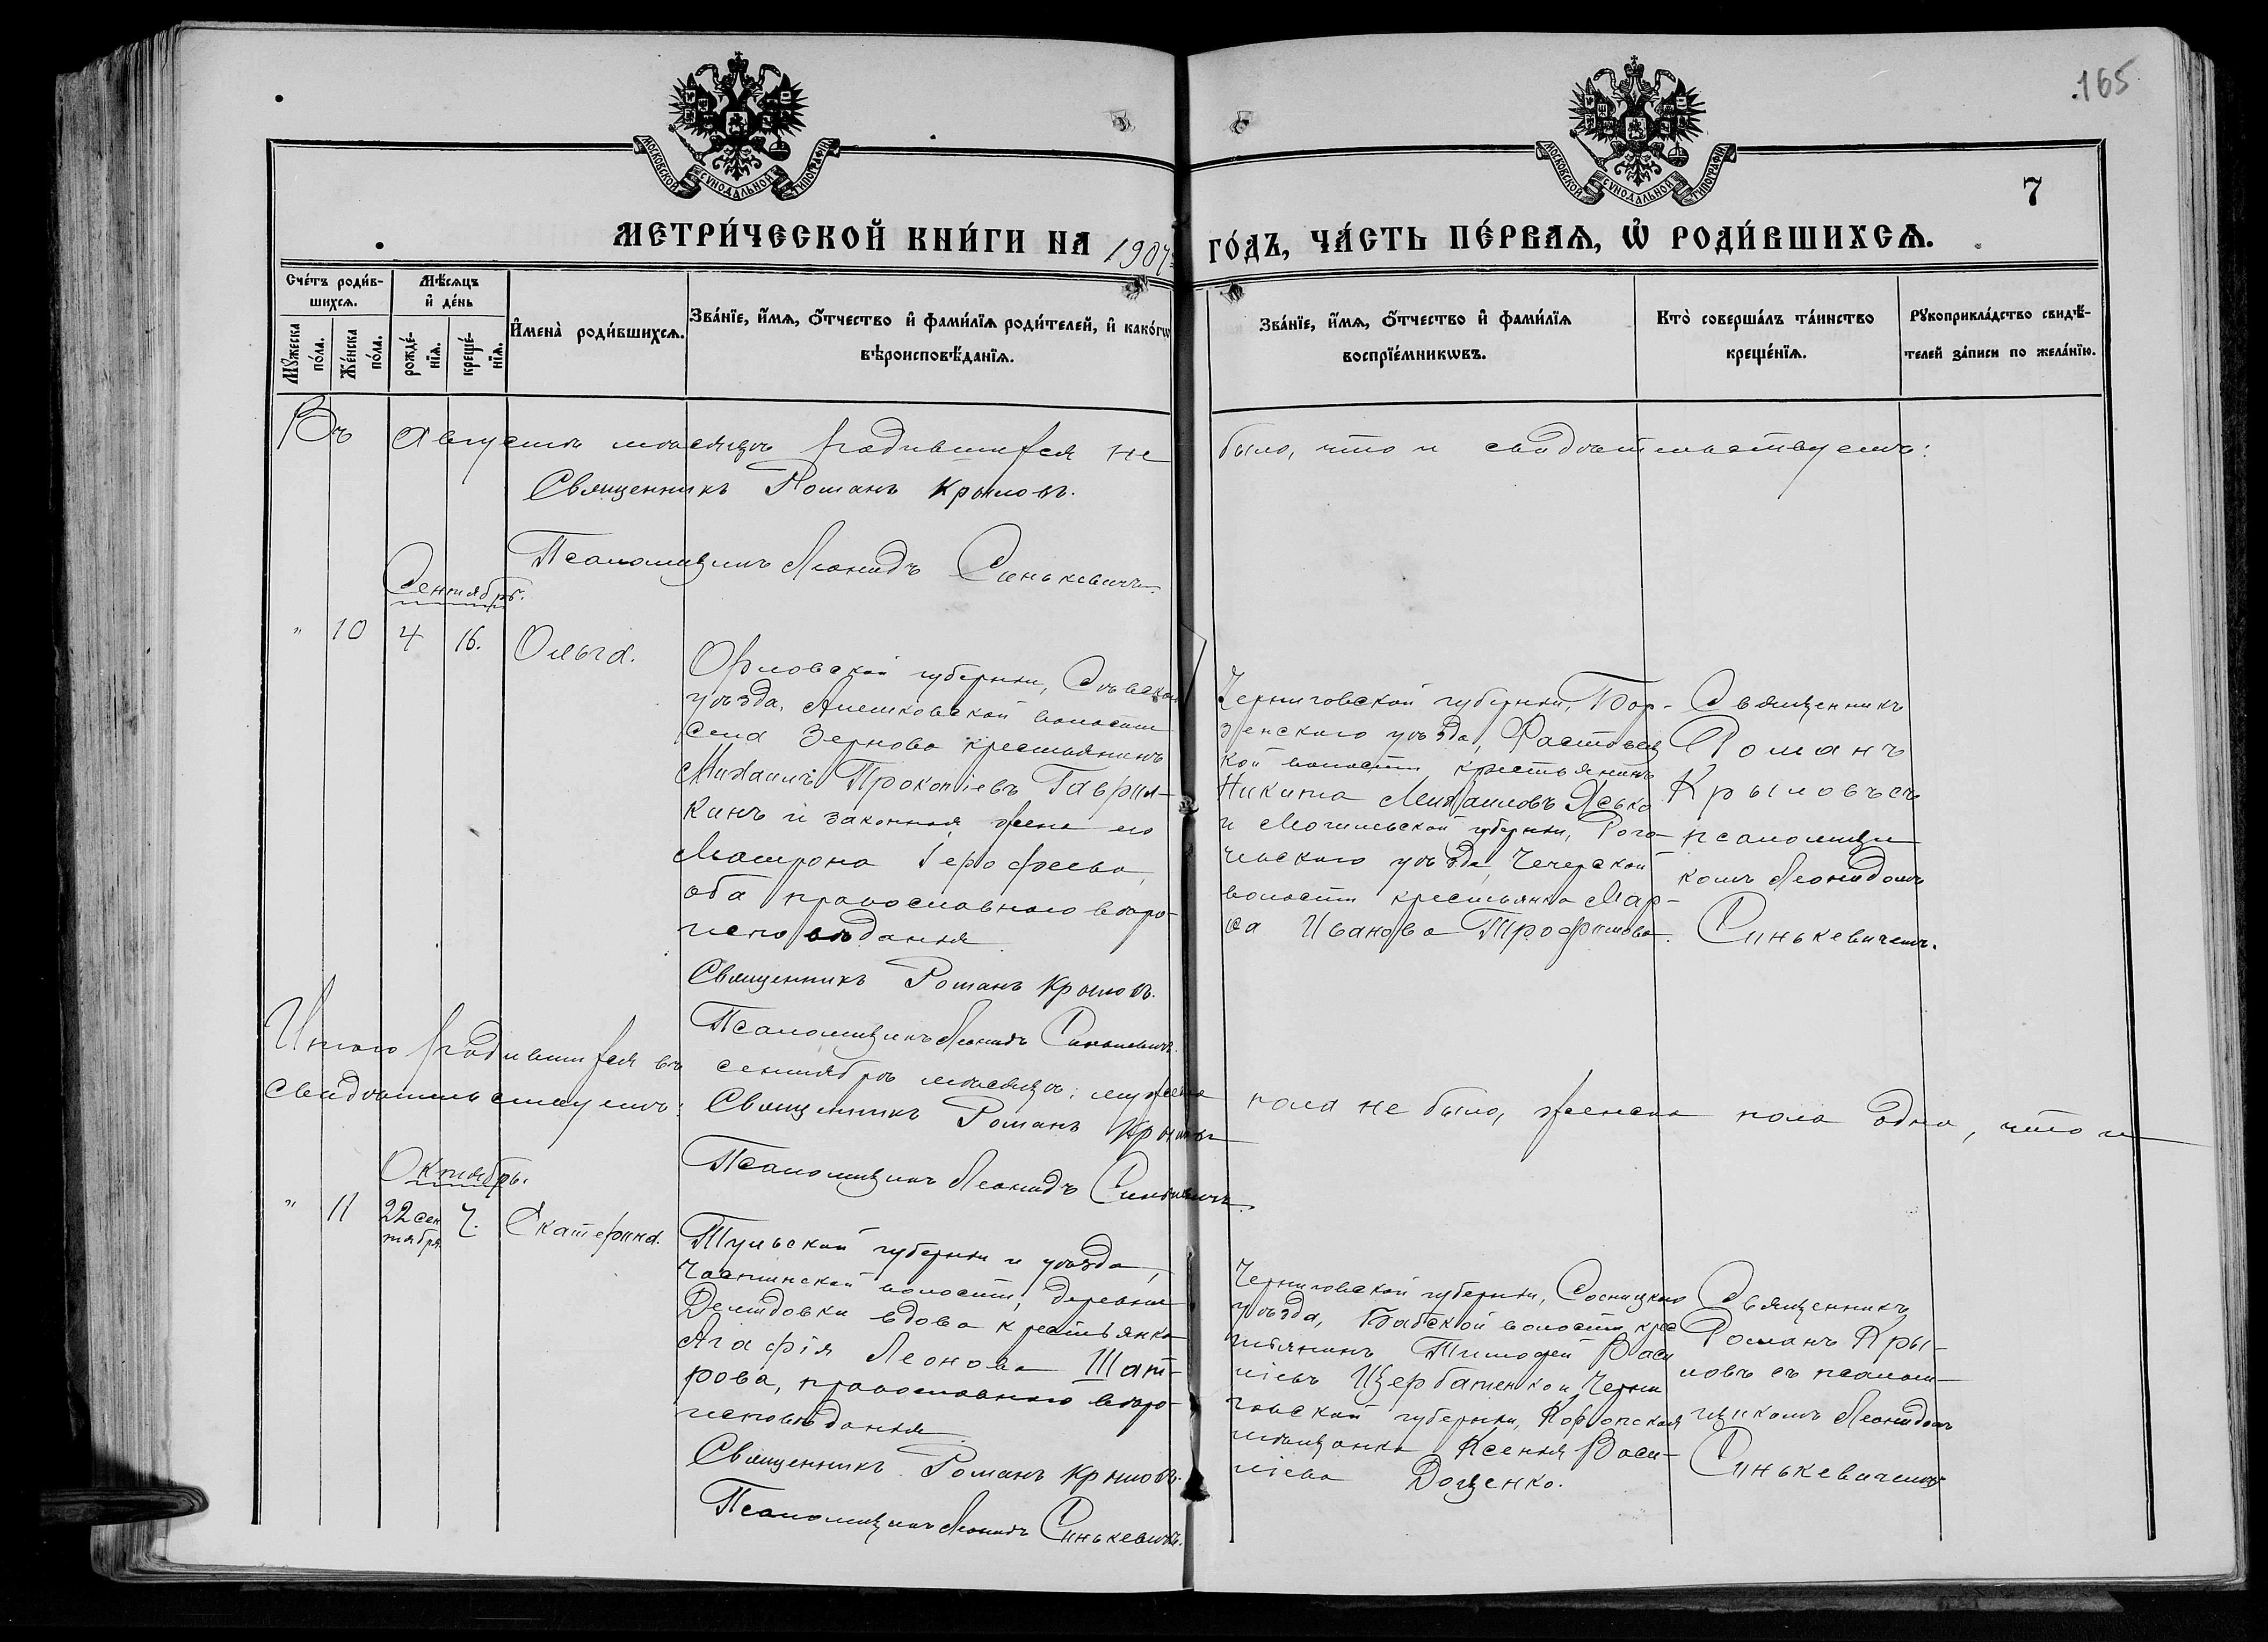 165
МОСКОВСКОЙ СѴНОДАЛЬНОЙ ТИПОГРАФІИ
МОСКОВСКОЙ СѴНОДАЛЬНОЙ ТИПОГРАФІИ
7
МЕТРИ́ЧЕСКОЙ КНИ́ГИ НА 1907 ГО́ДЪ, ЧА́СТЬ ПЕ́РВАѦ, Ѡ҆ РОДИ́ВШИХСѦ.
Сче́тъ роди́в-
шихсѧ.
Мѣ́сѧцъ
и҆ де́нь
Мꙋ́жеска
по́ла.
Же́нска
по́ла.
рожде́-
нїѧ.
креще́-
нїѧ.
И҆мена̀ роди́вшихсѧ.
Зва́нїе, и҆́мѧ, ѻ҆́тчество и҆ фами́лїѧ роди́телей, и҆ како́гѡ
вѣроисповѣ́данїѧ.
Зва́нїе, и҆́мѧ, ѻ҆́тчество и҆ фами́лїѧ
воспрїе́мникѡвъ.
Кто̀ соверша́лъ та́инство
креще́нїѧ.
Рꙋкоприкла́дство свидѣ́-
телей за́писи по жела́нїю.
Въ Августѣ мѣсяцѣ родившихся не было, что и свидѣтельствуемъ:
Священникъ Романъ Крыловъ.
Псаломщикъ Леонидъ Синькевичъ.
Сентябрь.
" 10 4 16. Ольга.
Орловской губерніи, Сѣвскаго
уѣзда, Алешковской волости
села Зерново крестьянинъ
Михаилъ Прокопіевъ Гаврил-
кинъ и законная жена его
Матрона Іерофеева,
оба православнаго вѣро-
исповѣданія.
Священникъ Романъ Крыловъ.
Псаломщикъ Леонидъ Синькевичъ.
Черниговской губерніи, Бор-
зенскаго уѣзда, Фастовец
кой волости крестьянинъ
Никита Михаиловъ Ясько
и Могилевской губерніи, Рога-
чевскаго уѣзда, Чечерской
волости крестьянка Мар-
ѳа Иванова Трофимова.
Священникъ
Романъ
Крыловъ съ
псаломщи
комъ Леонидомъ
Синькевичемъ.
Итого родившихся въ сентябрѣ мѣсяцѣ: мужеска пола не было, женска пола одна, что и
свидѣтельствуемъ: Священникъ Романъ Крыловъ
Псаломщикъ Леонидъ Синькевичъ.
Октябрь.
" 11 22 сен
тября. 7. Екатерина.
Тульской губерніи и уѣзда,
волости, деревни
Демидовки вдова крестьянка
Агафія Леонова Шат-
рова, православнаго вѣро-
исповѣданія.
Священникъ Романъ Крыловъ.
Псаломщикъ Леонидъ Синькевичъ.
Черниговской губерніи, Сосницкаго
уѣзда, Бабской волости крес
тьянинъ Тимофей Васи
ліевъ Щербатенко и Черни
говской губерніи, Коропская
мѣщанка Ксенія Васи-
ліева Доценко.
Священникъ
Романъ Кры-
ловъ съ псалом-
щикомъ Леонидомъ
Синькевичемъ